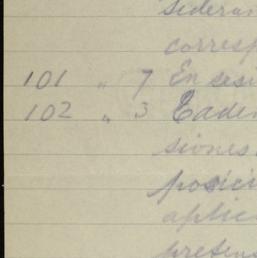 sideran
corresp
101 " 7 En sesi
102 " 3 Eaden
siones
posici
aplic
pretens